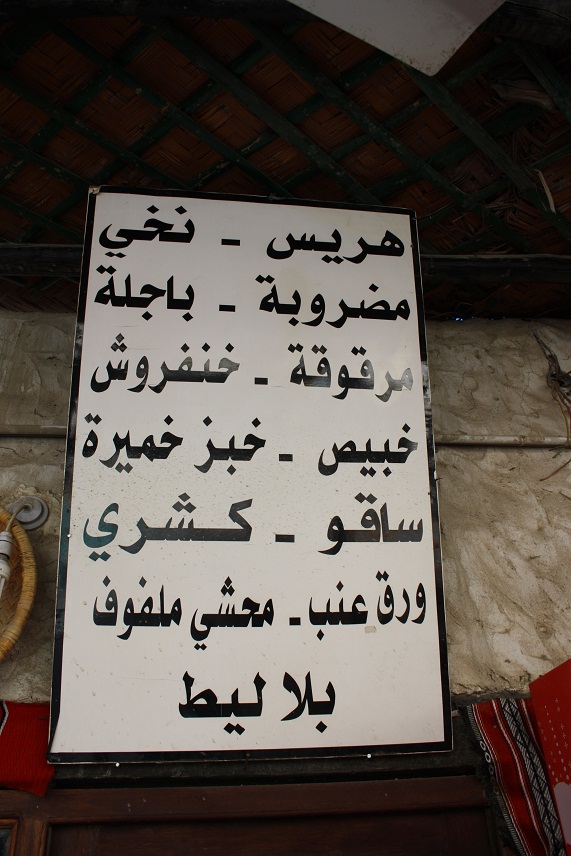 هريس - نخي
مضروبة - باجلة
مرقوقة - خنفروش
خبيص - خبز خميرة
ساقو - كشري
ورق عنب - محشي ملفوف
بلا ليط